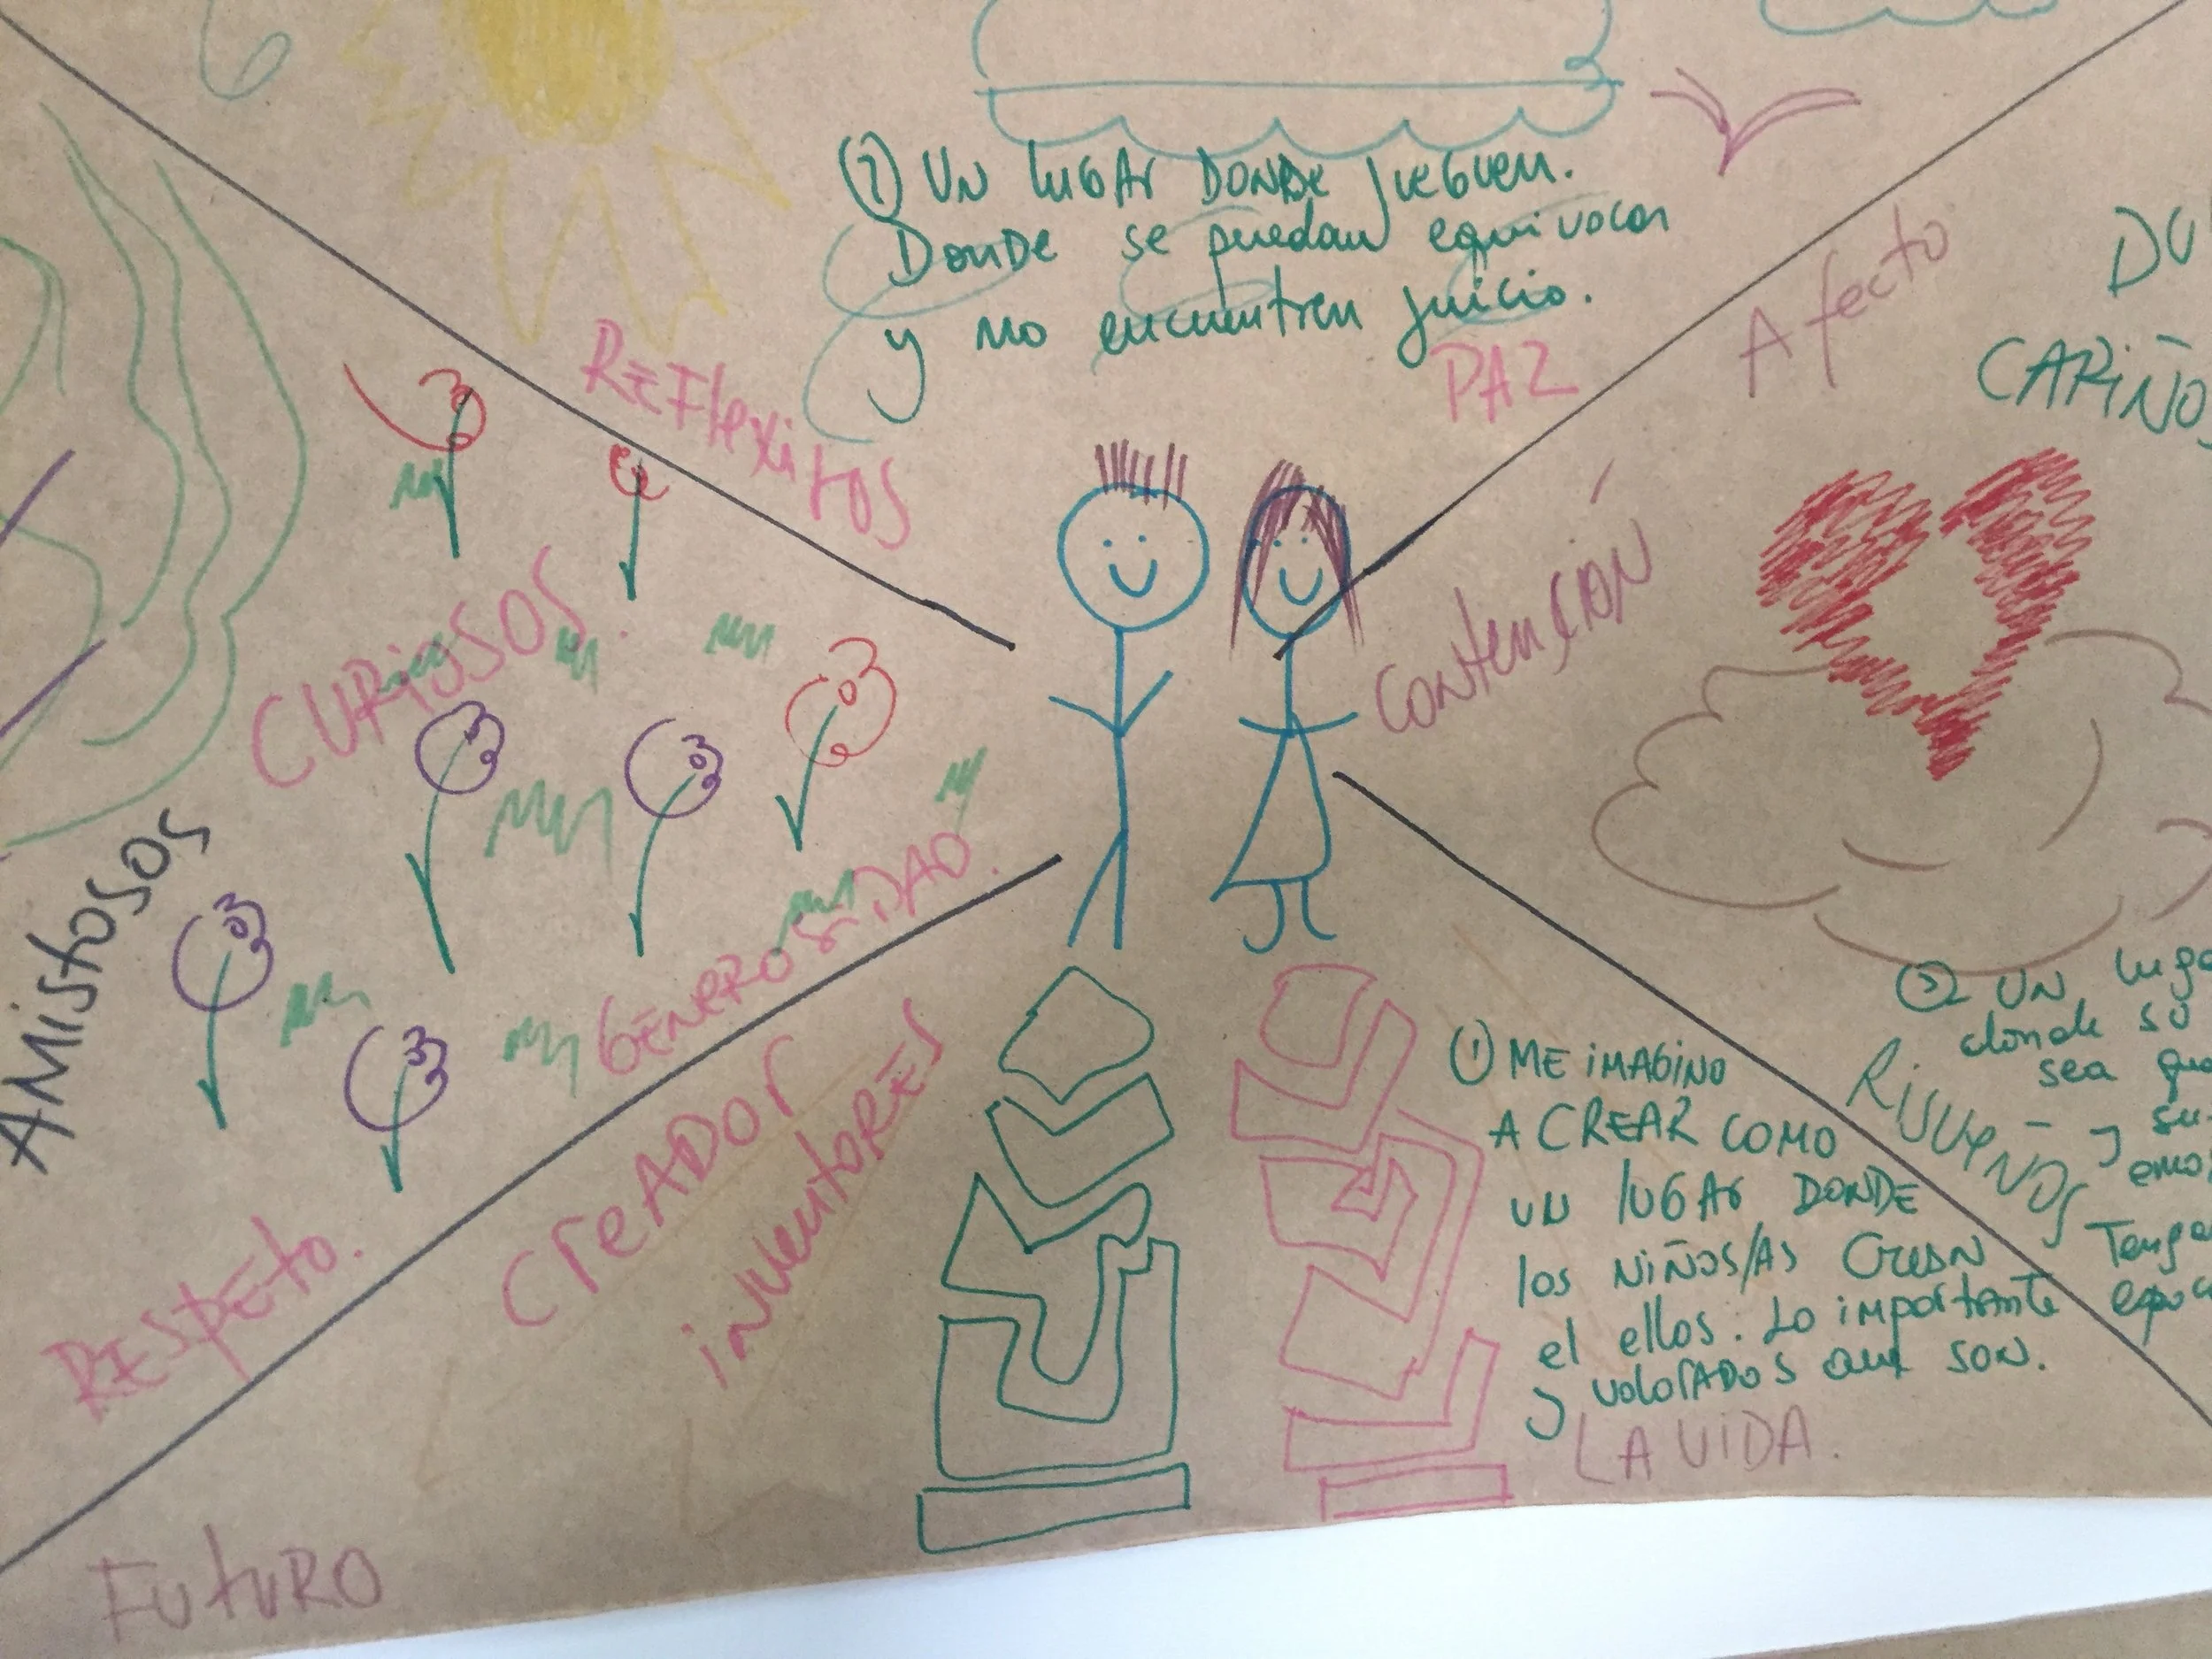 ② UN lUGAr DONDE JUEGUEN.
DONDE se puedan equivocar
y no encuentren juicio.
PAZ
REFlexiVOS
Afecto
CARIÑO
CONtENCIÓN
CURIOSOS.
AMIStOSOS
GENEROSIDAD.
RESPEtO.
CreADOr
INVENtORES
① ME IMAGINO
A CREAR COMO
UN lUGAr DONDE
los NIÑOS/AS CREAN
el ellos. Lo importante
y valorados que son.
LA VIDA.
③ UN
donde su
sea
y su
RISUEÑOS
FUtURO